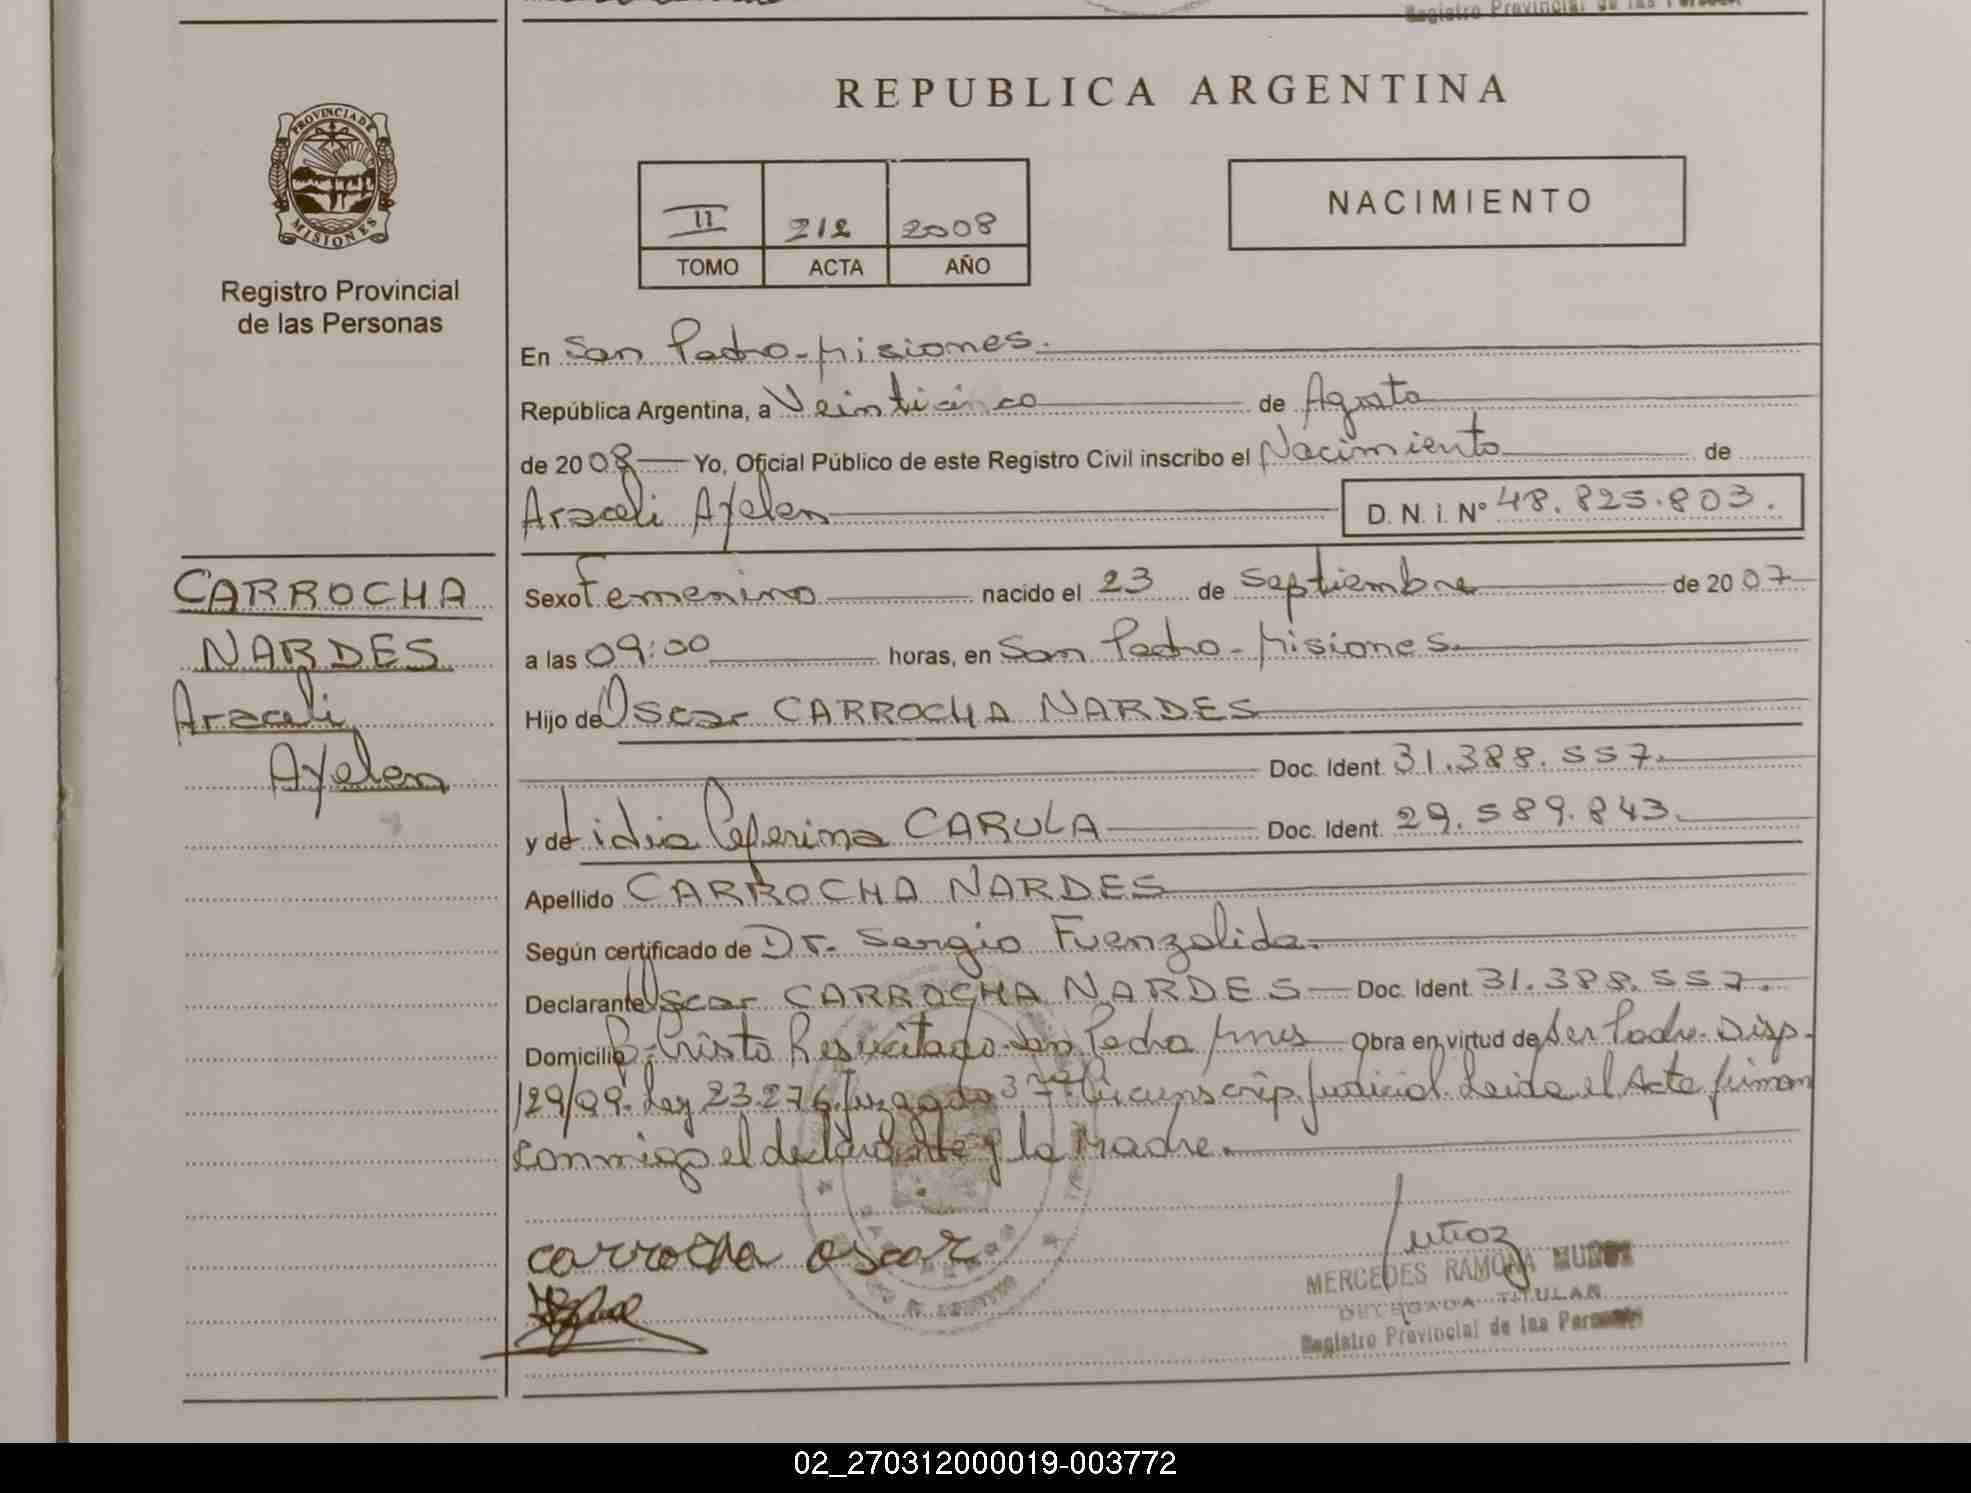 Registro Provincial de las Person
REPUBLICA ARGENTINA
PROVINCIA DE
MISIONES
Registro Provincial
de las Personas
II 212 2008
TOMO ACTA AÑO
NACIMIENTO
En San Pedro-Misiones.
República Argentina, a Veinticinco de Agosto
de 2008 Yo, Oficial Público de este Registro Civil inscribo el Nacimiento de
Araceli Ayelen D. N. I. Nº 48.825.803.
CARROCHA
NARDES
Araceli
Ayelen
Sexo Femenino nacido el 23 de Septiembre de 2007
a las 09:00 horas, en San Pedro-Misiones.
Hijo de Oscar CARROCHA NARDES
Doc. Ident. 31.388.557.
y de Lidia Ceferina CARULA Doc. Ident. 29.589.843.
Apellido CARROCHA NARDES
Según certificado de Dr. Sergio Fuenzalida.
Declarante Oscar CARROCHA NARDES Doc. Ident. 31.388.557.
Domicilio B. Cristo Resucitado San Pedro Mnes Obra en virtud de ser Padre. Disp.
129/09. Ley 23.276 Juzgado 3ra Circunscrip. Judicial. Leida el Acta firman
conmigo el declarante y la Madre.
carrocha oscar
Muñoz
MERCEDES RAMONA MUÑOZ
DELEGADA TITULAR
Registro Provincial de las Personas
02_270312000019-003772